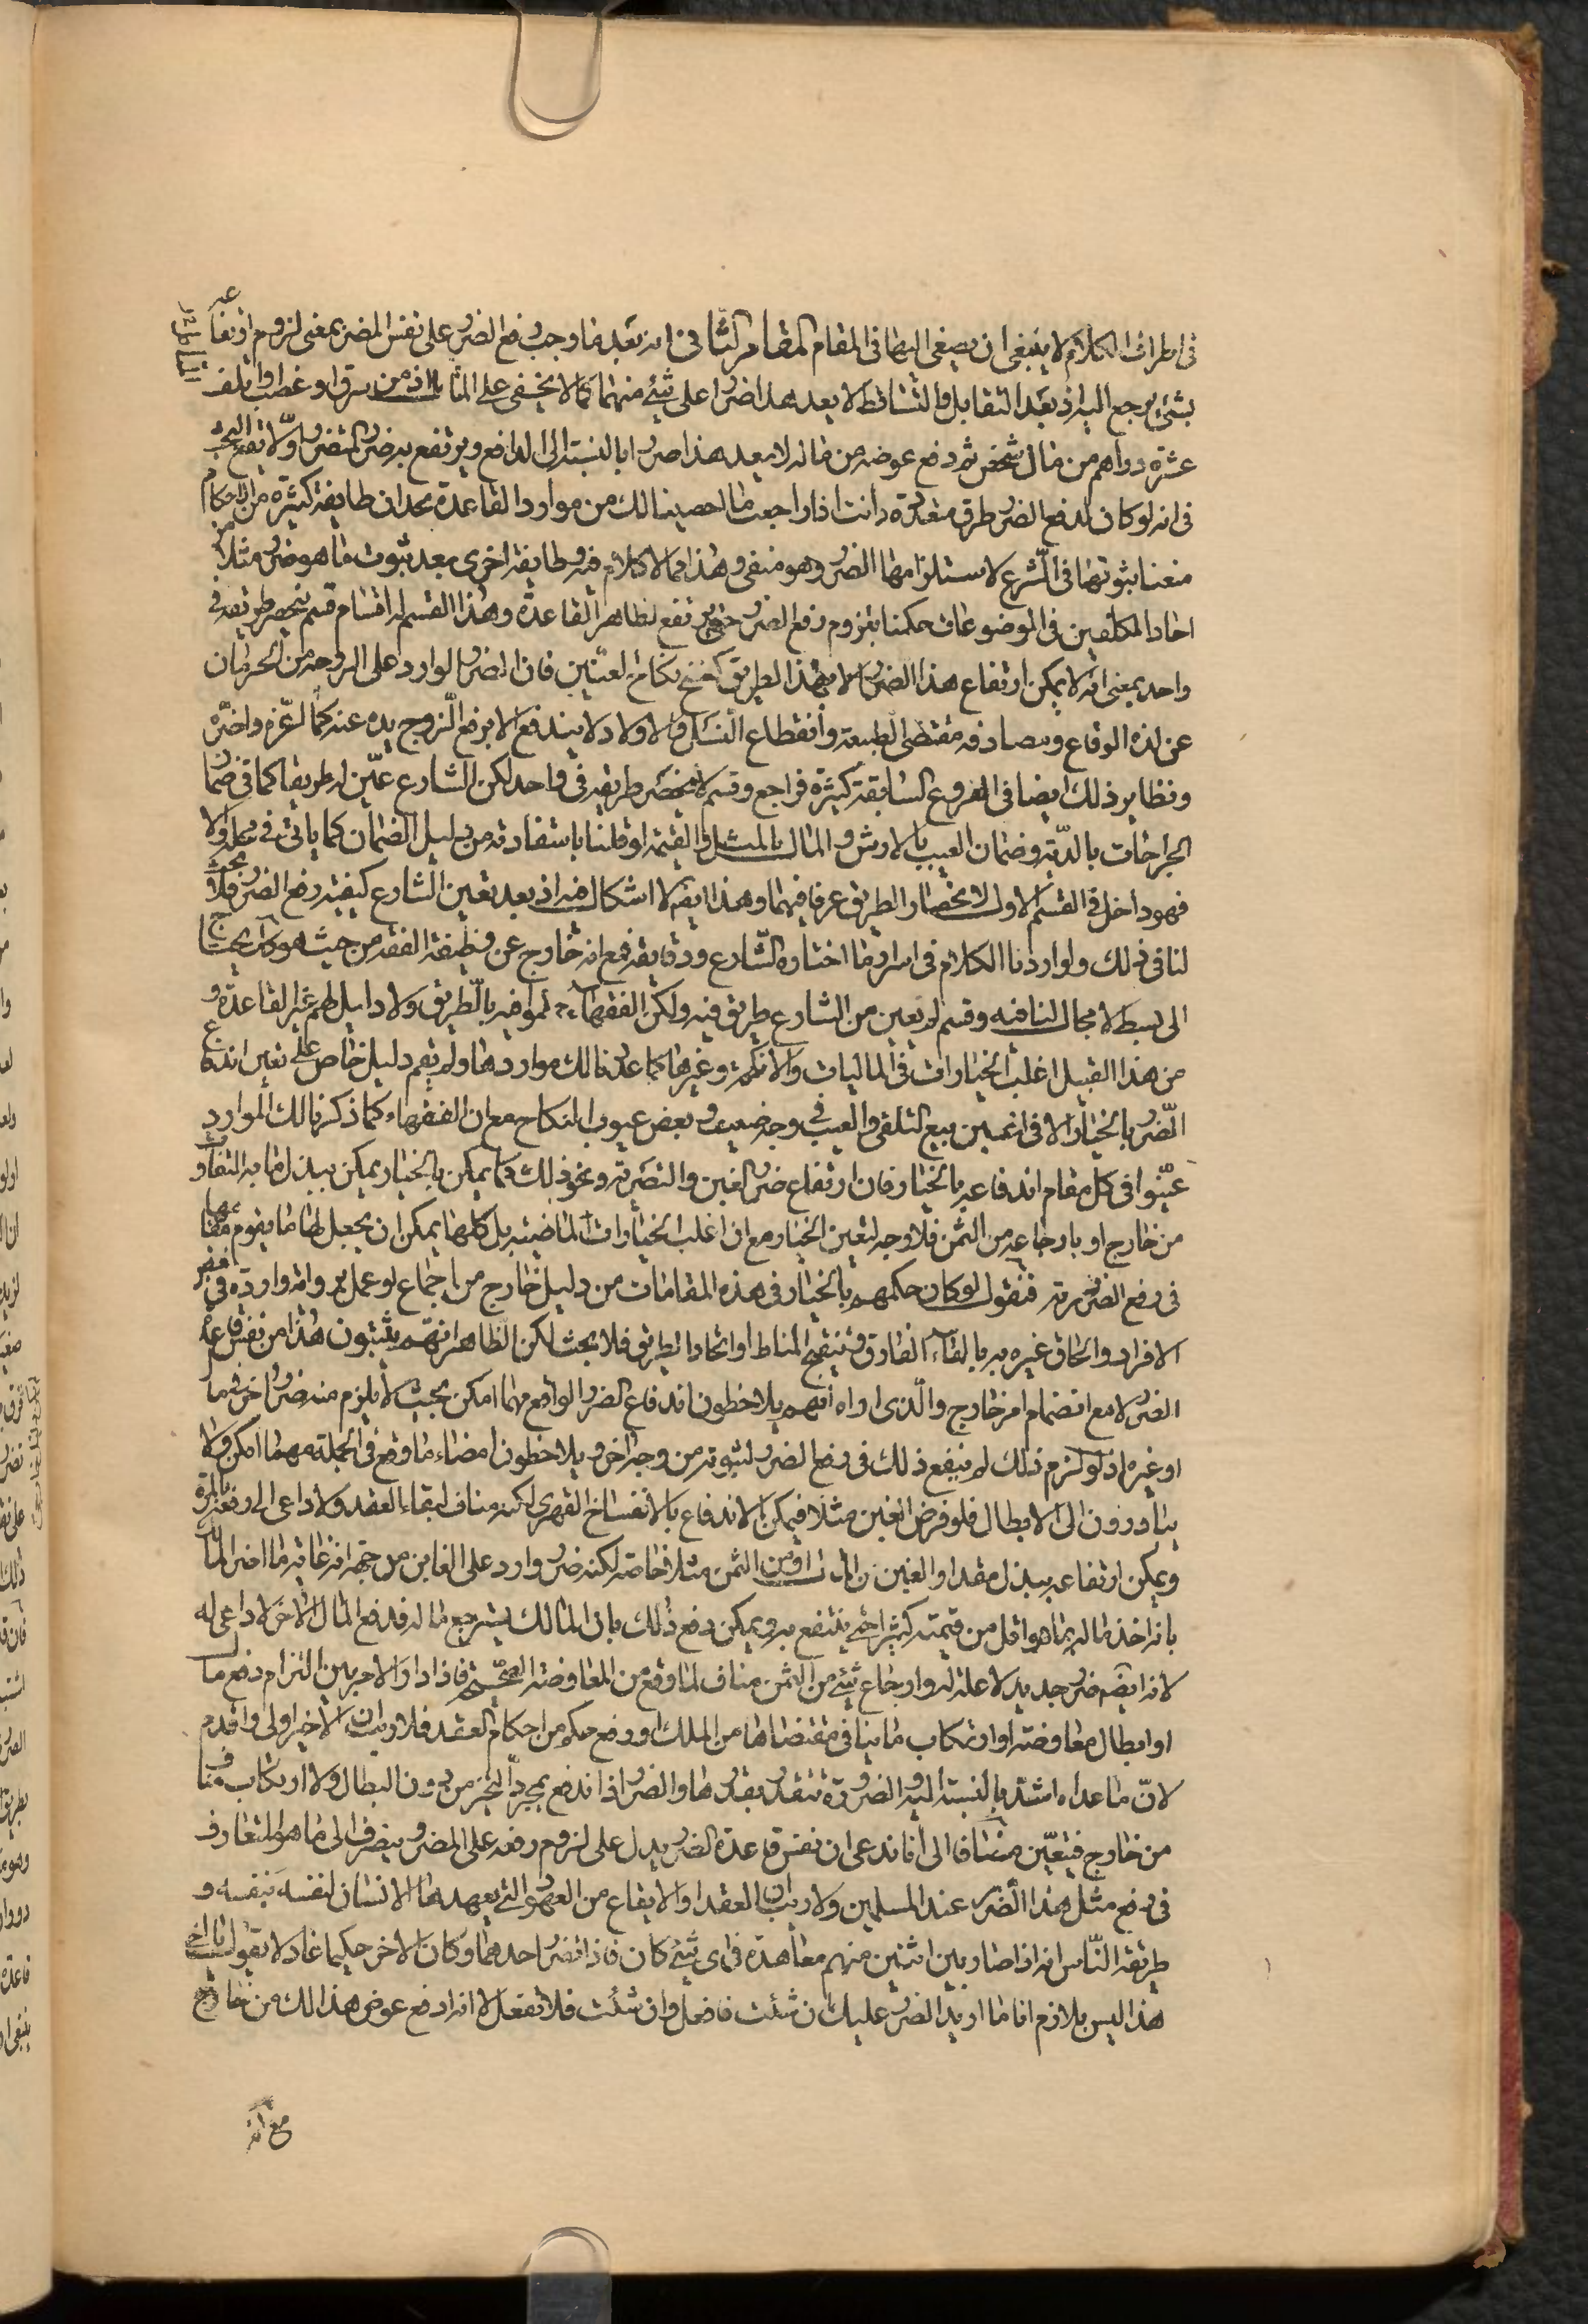 فى اطراف الكلام لا ينبغى ان يصغى اليها فى المقام المقام الثانى انه بعد ما وجب رفع الضرر على نفس المضر بمعنى لزوم ارتفاعه
بشئ يرجع اليه اذ بعد التقابل والتساقط لا يعد هذا ضررا على شئ منهما كما لا يخفى على المتامل اذ من سرق او غصب او اتلف
عشرة دراهم من مال شخص ثم دفع عوضه من ماله لا يعد هذا ضررا بالنسبة الى الدافع ويرتفع به ضرر المتضرر اولا يقع البحث
فى انه لو كان لدفع الضرر طرق متعددة وانت اذا راجعت ما احصينا لك من موارد القاعدة تجد ان طايفة كثيرة من الاحكام
منعنا ثبوتها فى الشرع لاستلزامها الضرر وهو منفى وهذا مما لا كلام فيه وطايفة اخرى بعد ثبوت ما هو ضرر مثلا من
احاد المكلفين فى الموضوعات حكمنا بلزوم رفع الضرر حتى يرتفع لظاهر القاعدة وهذا القسم له اقسام قسم ينحصر طريقه فى
واحد بمعنى انه لا يمكن ارتفاع هذا الضرر الا بهذا الطريق كفسخ نكاح العنين فان الضرر الوارد على الزوجة من الحرمان
عن لذة الوقاع ومصادفة مقتضى الطبيعة وانقطاع النسل والاولاد لا يندفع الا برفع الزوج يده عنه كما لعزم واخره
ونظاير ذلك ايضا فى الفروع السابقة كثيرة فراجع وقسم لا ينحصر طريقه فى واحد لكن الشارع عين له طريقا كما فى ضمان
الجراحات بالدية وضمان العيب بالارش والمال بالمثل والقيمة لو قلنا باستفادته من دليل الضمان كما ياتى فى محله والا
فهو داخل فى القسم الاول لانحصار الطريق عرفا فيهما وهذا ايضا لا اشكال فيه اذ بعد تعيين الشارع كيفية رفع الضرر فلا بحث
لنا فى ذلك ولو اردنا الكلام فى اسرار ما اختاره الشارع ودقايقه فمع انه خارج عن وظيفة الفقه من حيث هو كذلك يحتاج
الى بسط لا مجال لنا فيه وقسم لم يعين من الشارع طريق فيه ولكن الفقهاء التزموا فيه بالطريق ولا دليل لهم غير القاعدة و
من هذا القبيل اغلب الخيارات فى الماليات والانكحة وغيرها كما عددنا لك مواردها ولم يقم دليل خاص على تعين اندفاع
الضرر بالخيار الا فى اثنين بيع التلقى والعيب فى وجه ضعيف وبعض عيوب النكاح مع ان الفقهاء كما ذكرنا لك الموارد
عينوا فى كل مقام اندفاعه بالخيار فان ارتفاع ضرر الغبن والتصرية ونحو ذلك كما يمكن بالخيار يمكن ببذل ما به التفاوت
من خارج او بارجاعه من الثمن فلا وجه لتعين الخيار مع ان اغلب الخيارات الماضية بل كلها يمكن ان يجعل لها ما يقوم مقامها
فى رفع الضرر فنقول لو كان حكمهم بالخيار فى هذه المقامات من دليل خارج من اجماع او عمل برواية واردة فى بعض
الافراد والحاق غيره به بالغاء الفارق وتنقيح المناط او اتحاد الطريق فلا بحث لكن الظاهر انهم يثبتون هذا من نفس قاعدة
الضرر لا مع انضمام امر خارج والذى اراه انهم يلاحظون اندفاع الضرر الواقع مهما امكن بحيث لا يلزم منه ضرر اخر فيما
او غيره اذ لو لزم ذلك لم ينفع ذلك فى رفع الضرر لثبوته من وجه اخر ويلاحظون امضاء ما وقع فى الجملة مهما امكن ولا
يبادرون الى الابطال فلو فرض الغبن مثلا فيمكن الاندفاع بالانفساخ القهرى لكنه مناف لبقاء العقد ولا داعى الى رفعه بالمرة
ويمكن ارتفاعه ببذل مقدار الغبن من المال او من الثمن مثلا خاصة لكنه ضرر وارد على الغابن من جهة انه غاية ما اضر المال
بانه اخذ ماله بما هو اقل من قيمته كثيرا حتى ينتفع به ويمكن دفع ذلك بان المالك يسترجع ماله فدفع المال الاخر لا داعى له
لانه ايضا ضرر جديد لا علة له وارجاع شئ من الثمن مناف لما وقع من المعاوضة الصحيحة فاذا دار الامر بين التزام دفع مال
او ابطال معاوضة او ارتكاب ما ينافى مقتضاها من الملك او رفع حكم من احكام العقد فلا ريب ان الاخير اولى واقدم
لان ما عداه اشد بالنسبة اليه والضرورة تتقدر بقدرها والضرر اذا اندفع بمجرد التخير من دون ابطال ولا ارتكاب مناف
من خارج فيتعين مضافا الى انا ندعى ان نفس قاعدة الضرر يدل على لزوم رفعه على المضر وينصرف الى ما هو المتعارف
فى دفع مثل هذا الضرر عند المسلمين ولا ريب ان العقد او الايقاع من العهود التى يعهدها الانسان لنفسه بنفسه و
طريقة الناس انه اذا صار بين اثنين منهم معاهدة فى اى شئ كان فاذا تضرر احدهما وكان الاخر حكيما عادلا يقول يا اخى
هذا ليس بلازم انا ما اريد الضرر عليك ان شئت فافعل وان شئت فلا تفعل لا انه ادفع عوض هذا لك من خارج
مع انه